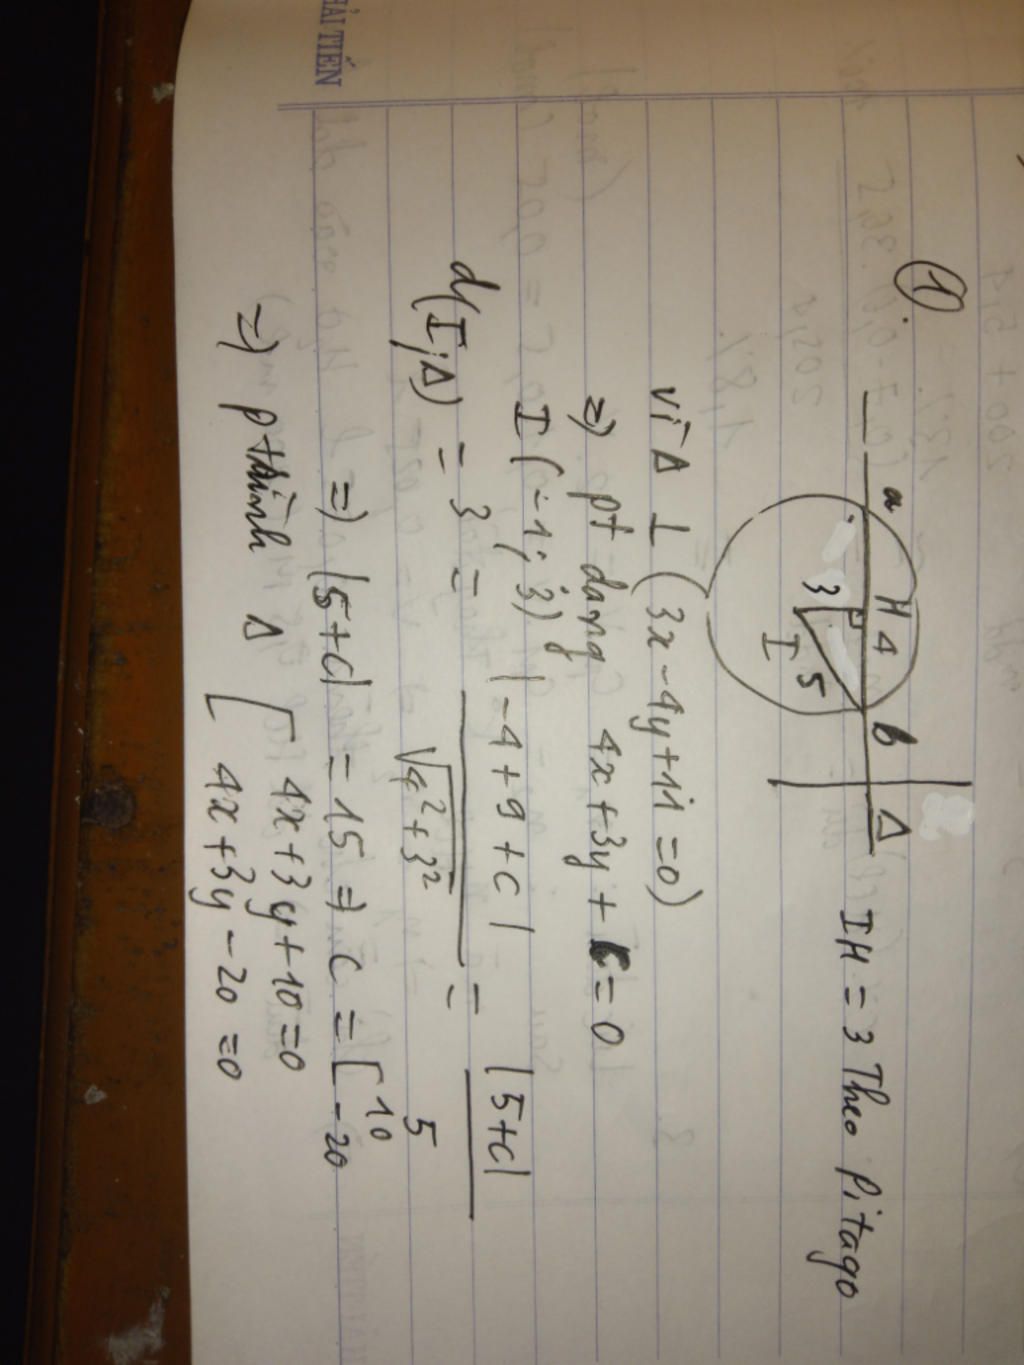 HẢI TIẾN
①.
a H 4 b Δ
3 5
I
IH = 3 Theo Pitago
Vì Δ ⊥ (3x - 4y + 11 = 0)
=> pt dạng 4x + 3y + c = 0
I (-1; 3)
d(I; Δ) = 3 = |-4 + 9 + c| / √4² + 3² = |5 + c| / 5
=> |5 + c| = 15 => c = [ 10
-20
=> ptrình Δ [ 4x + 3y + 10 = 0
4x + 3y - 20 = 0